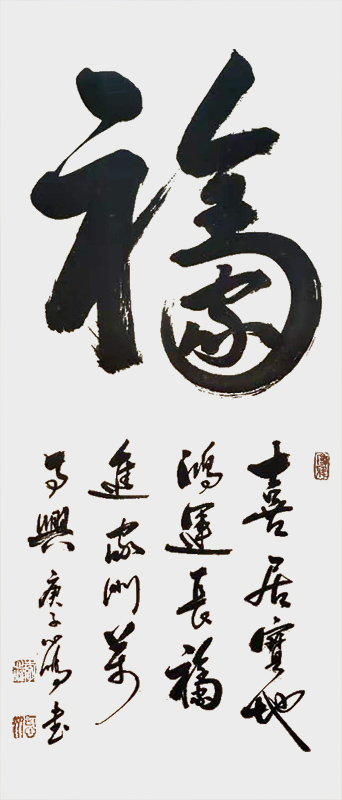 福
喜居寶地
鴻運長福
進家門萬
事興 庚子 書